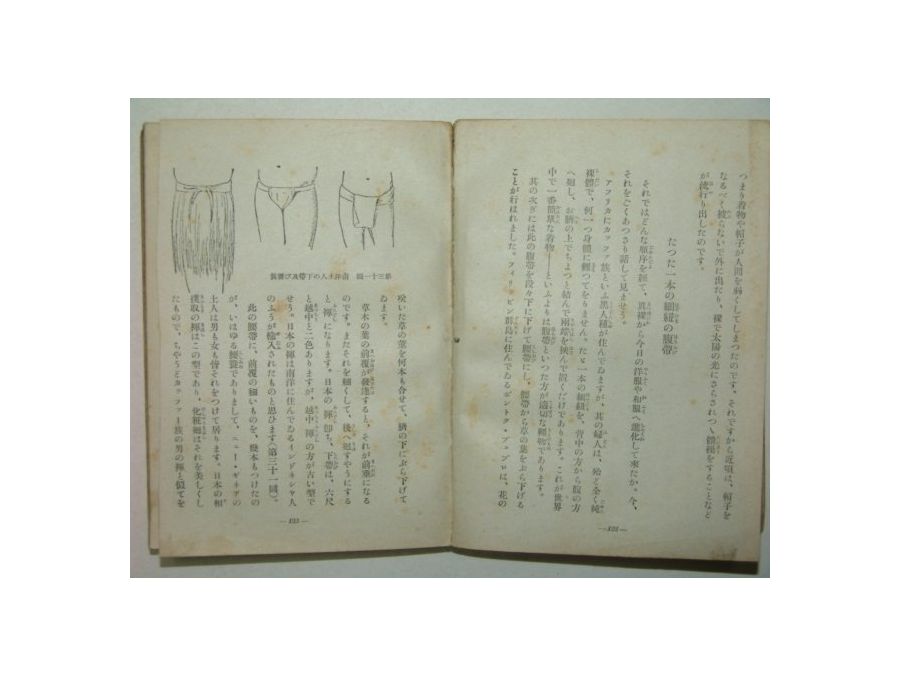 つまり着物や帽子が人間を弱くしてしまつたのです。それですから近頃は、帽子を
なるべく被らないで外に出たり、裸で太陽の光にさらされつゝ體操をすることなど
が流行り出したのです。
たつた一本の細紐の腹帶
それではどんな順序を經て、眞裸から今日の洋服や和服へ進化して來たか。今、
それをごくあつさり話して見ませう。
アフリカにカッファ族といふ黑人種が住んでゐますが、其の婦人は、殆ど全く純
裸體で、何一つ身體に纏つてをりません。たゞ一本の細紐を、背中の方から腹の方
へ廻し、お臍の上でちよつと結んで兩端を挾んで置くだけであります。これが世界
中で一番簡單な着物――といふよりは腹帶といつた方が適切な纏物であります。
其の次ぎには此の腹帶を段々下に下げて腰帶にし、腰帶から草の葉をぶら下げる
ことが行はれました。フィリッピン群島に住んでゐるボントク・ は、花の
—122—
第三十一圖 南洋土人の下帶及び腰簑
咲いた草の葉を何本も合せて、臍の下にぶら下げて
ゐます。
草木の葉の前覆が發達すると、それが前垂になる
のです。またそれを細くして、後へ廻すやうにする
と褌になります。日本の褌卽ち、下帶は、六尺
と越中と二色ありますが、越中褌の方が古い型で
せう。日本の褌は南洋に住んでゐるインドネシヤ人
のふうが輸入されたものと思ひます(第三十一圖)。
此の腰帶に、前覆の細いものを、幾本もつけたの
が、いはゆる腰簑でありまして、ニュー・ギネアの
土人は男も女も皆それをつけて居ります。日本の相
撲取の褌はこの型であり、化粧廻はそれを美しくし
たもので、ちやうどカッファー族の男の褌と似てを
—123—